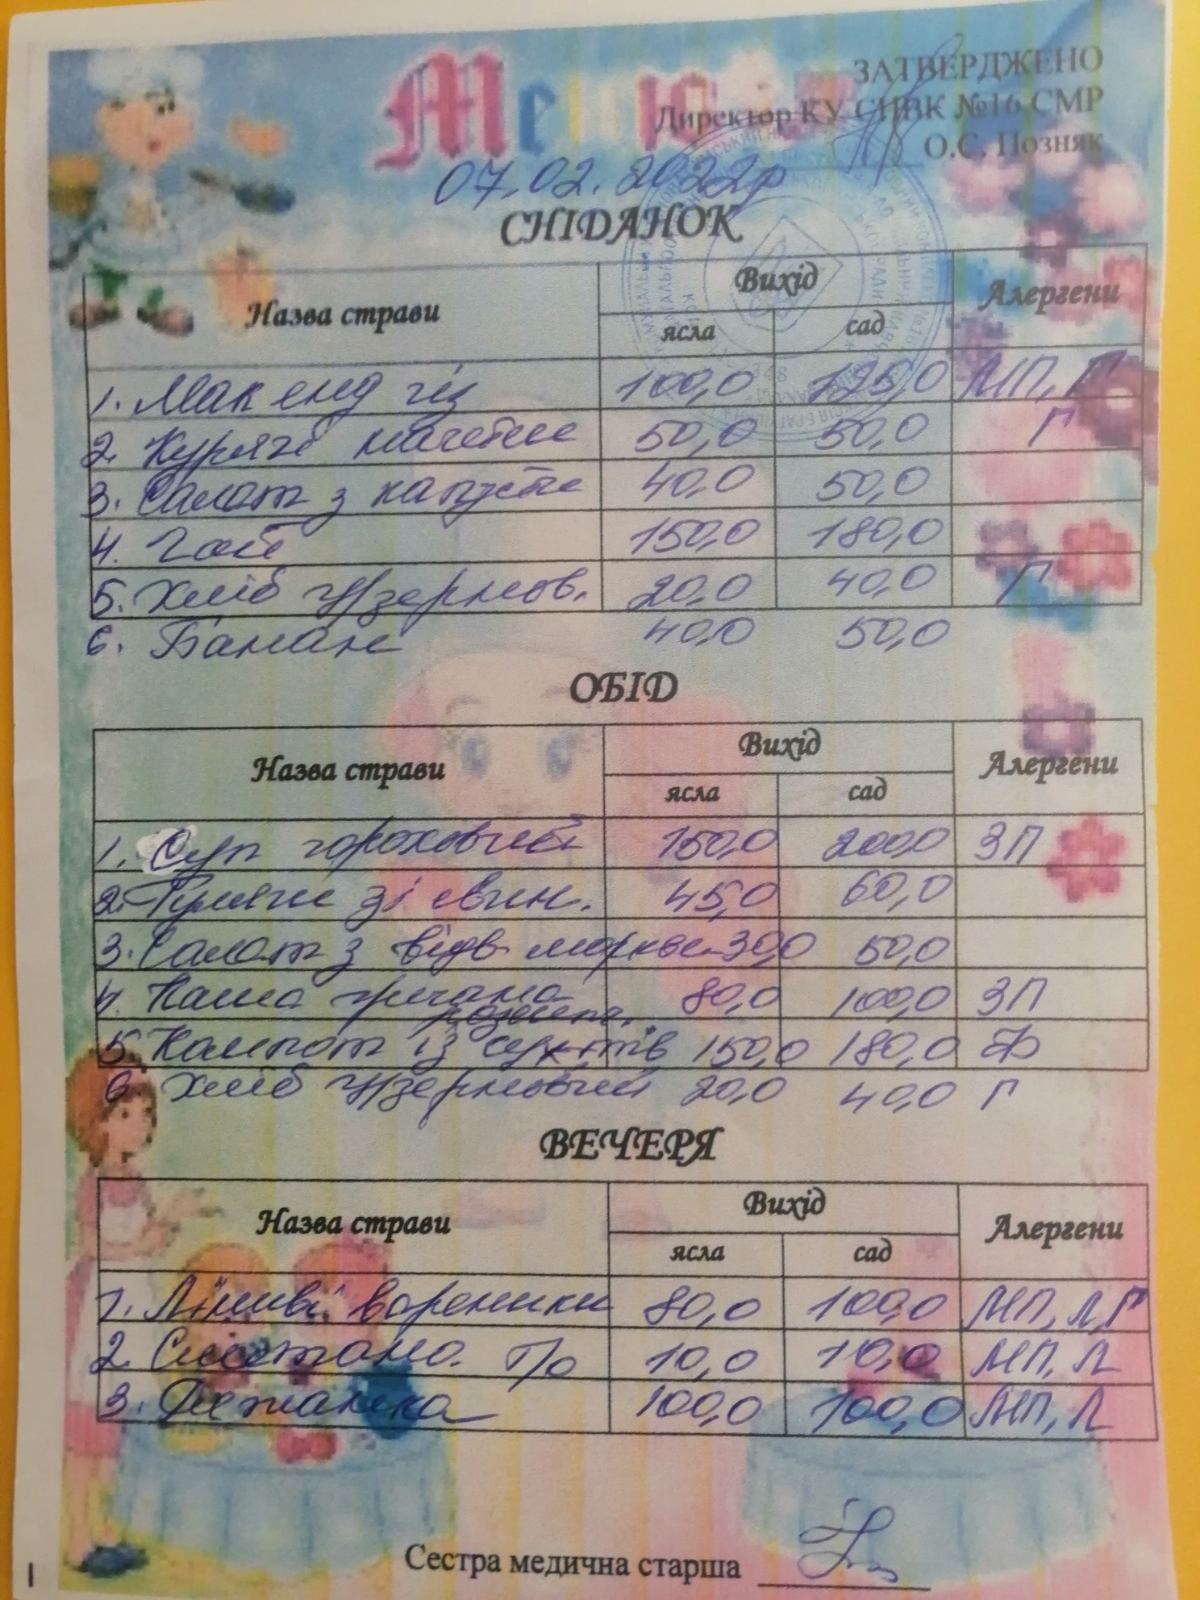 Меню
ЗАТВЕРДЖЕНО
Директор КУ СНВК №16 СМР
О.С. Позняк
07.02.2022р
СНІДАНОК
Назва страви Вихід Алергени
ясла сад
1. Мак енд чіз 100,0 125,0 МП, Г
2. Курячі 50,0 50,0 Г
3. Салат з капусти 40,0 50,0
4. Чай 150,0 180,0
5. Хліб ц/зернов. 20,0 40,0 Г
6. Банан 40,0 50,0
ОБІД
Назва страви Вихід Алергени
ясла сад
1. Суп гороховий 150,0 200,0 ЗП
2. Гуляш зі свин. 45,0 60,0
3. Салат з відв моркви 30,0 50,0
4. Каша гречана 80,0 100,0 ЗП
5. Компот із 150,0 180,0 Ф
6. Хліб ц/зерновий 20,0 40,0 Г
ВЕЧЕРЯ
Назва страви Вихід Алергени
ясла сад
1. Ліниві вареники 80,0 100,0 МП, Л, Г
2. Сметана. П/о 10,0 10,0 МП, Л
3. Ряжанка 100,0 100,0 МП, Л
Сестра медична старша